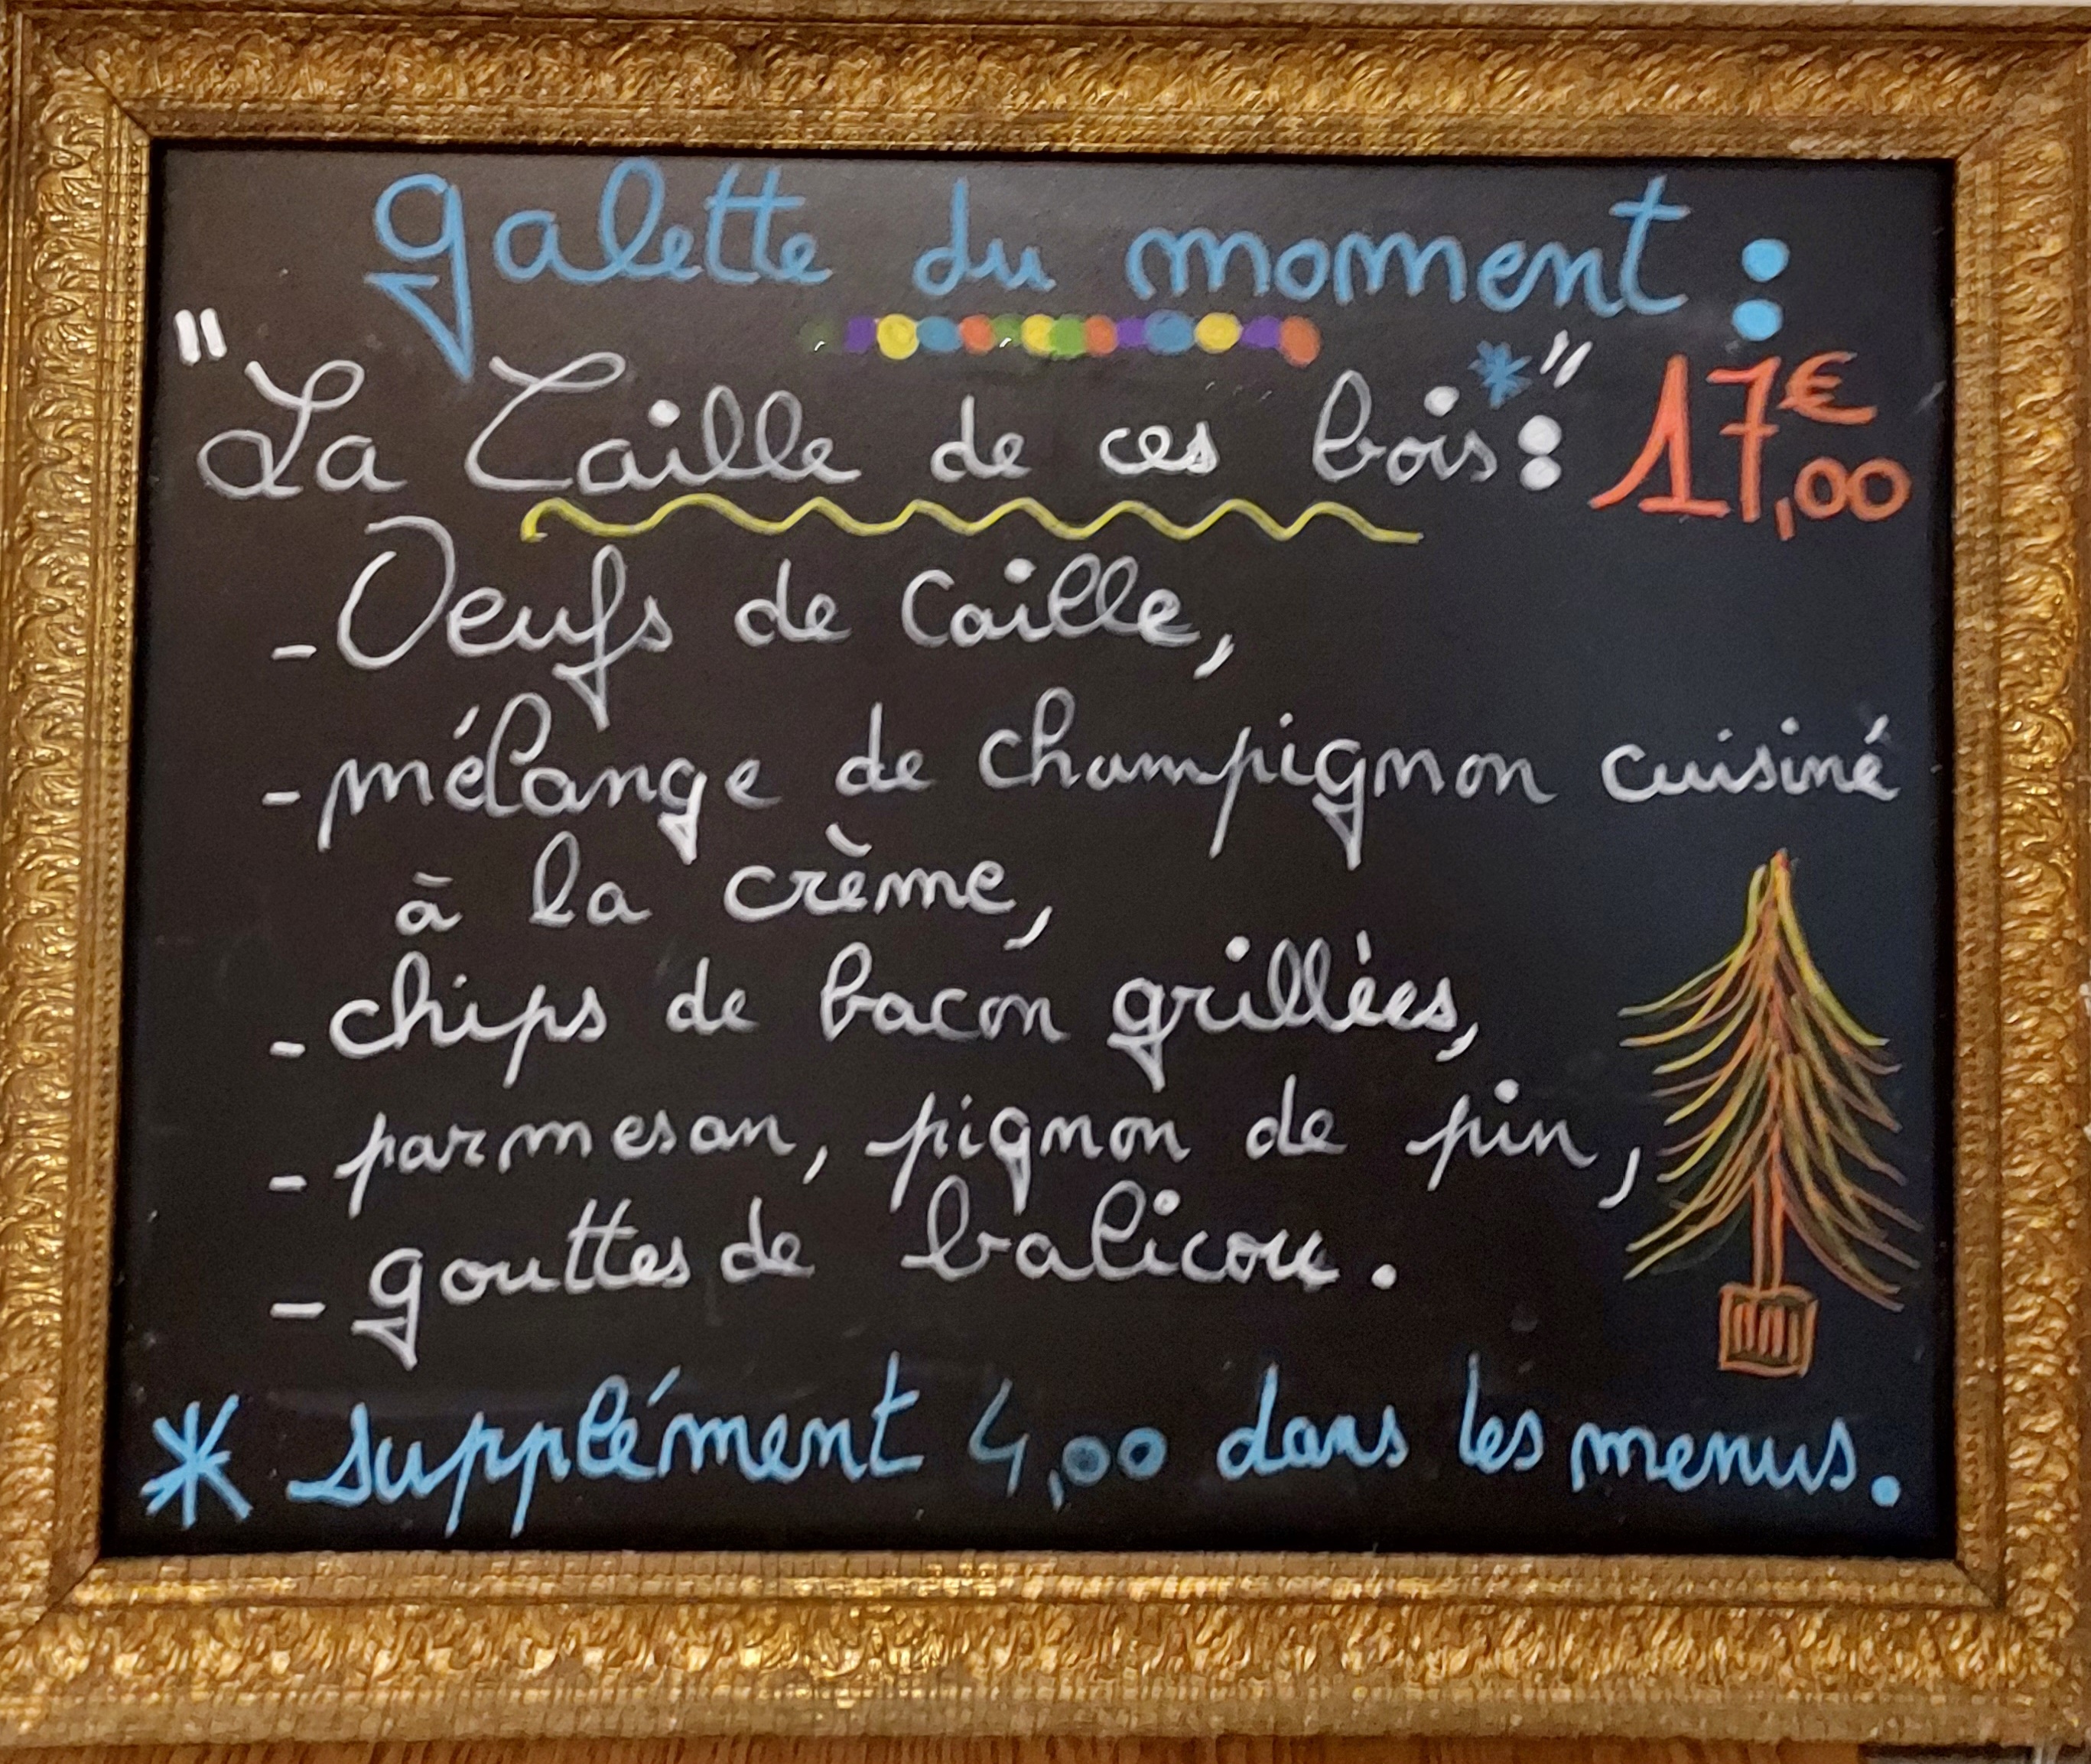 galette du moment :
"La Caille de ces bois*" : 17€,00
- Oeufs de Caille,
- mélange de champignon cuisiné
à la crème,
- chips de bacon grillées,
- parmesan, pignon de pin,
- gouttes de balicou.
* supplément 4,00 dans les menus.